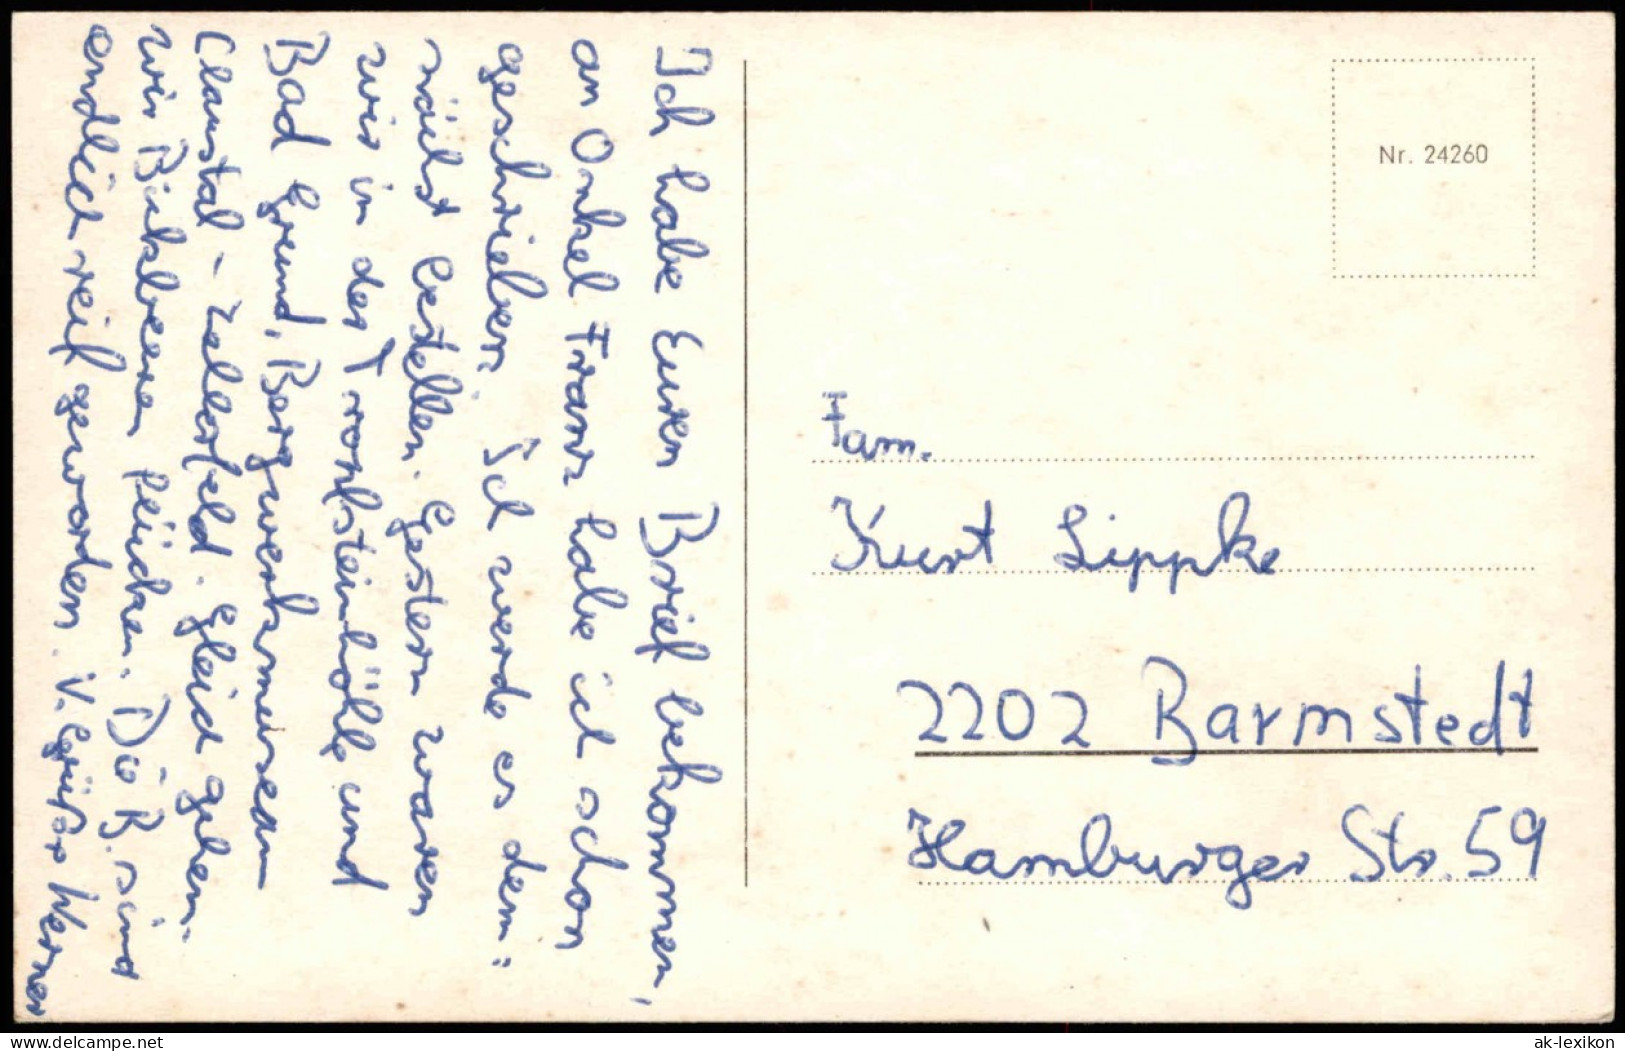 Ich habe Euren Brief bekommen,
an Onkel Franz habe ich schon
geschrieben. Ich werde es dem=
nächst bestellen. Gestern waren
wir in der Tropfsteinhöhle und
Bad Grund, Bergwerksmuseum
Claustal-Zellerfeld. Gleich gehen
wir Bickbeeren pflücken. Die B. sind
endlich reif geworden. V. Grüße Werner
Nr. 24260
Fam.
Kurt Lippke
2202 Barmstedt
Hamburger Str. 59
www.delcampe.net
ak-lexikon